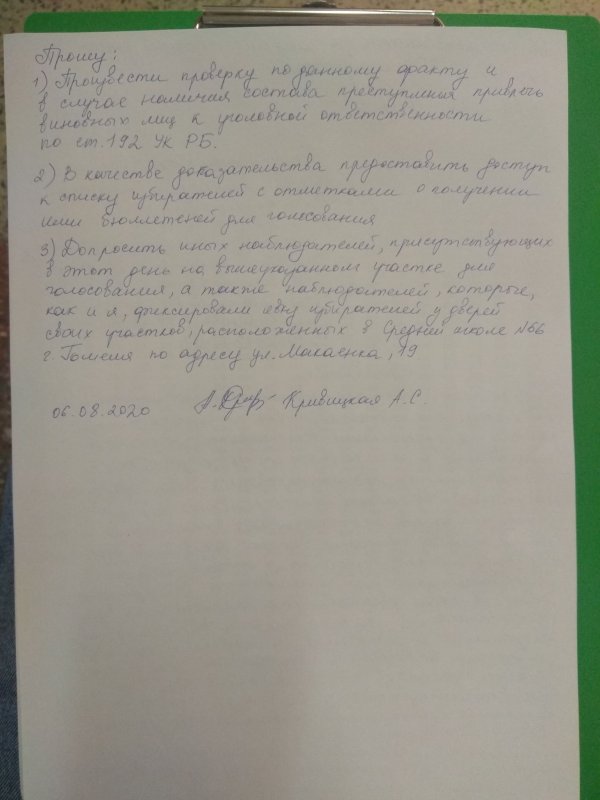 Прошу:
1) Произвести проверку по данному факту и
в случае наличия состава преступления привлечь
виновных лиц к уголовной ответственности
по ст.192 УК РБ.
2) В качестве доказательства предоставить доступ
к списку избирателей с отметками о получении
ими бюллетеней для голосования
3) Допросить иных наблюдателей, присутствующих
в этот день на вышеуказанном участке для
голосования, а также наблюдателей, которые,
как и я, фиксировали явку избирателей у дверей
своих участков, расположенных в Средней школе №66
г. Гомеля по адресу ул. Макаенка, 19
06.08.2020 Кривицкая А.С.